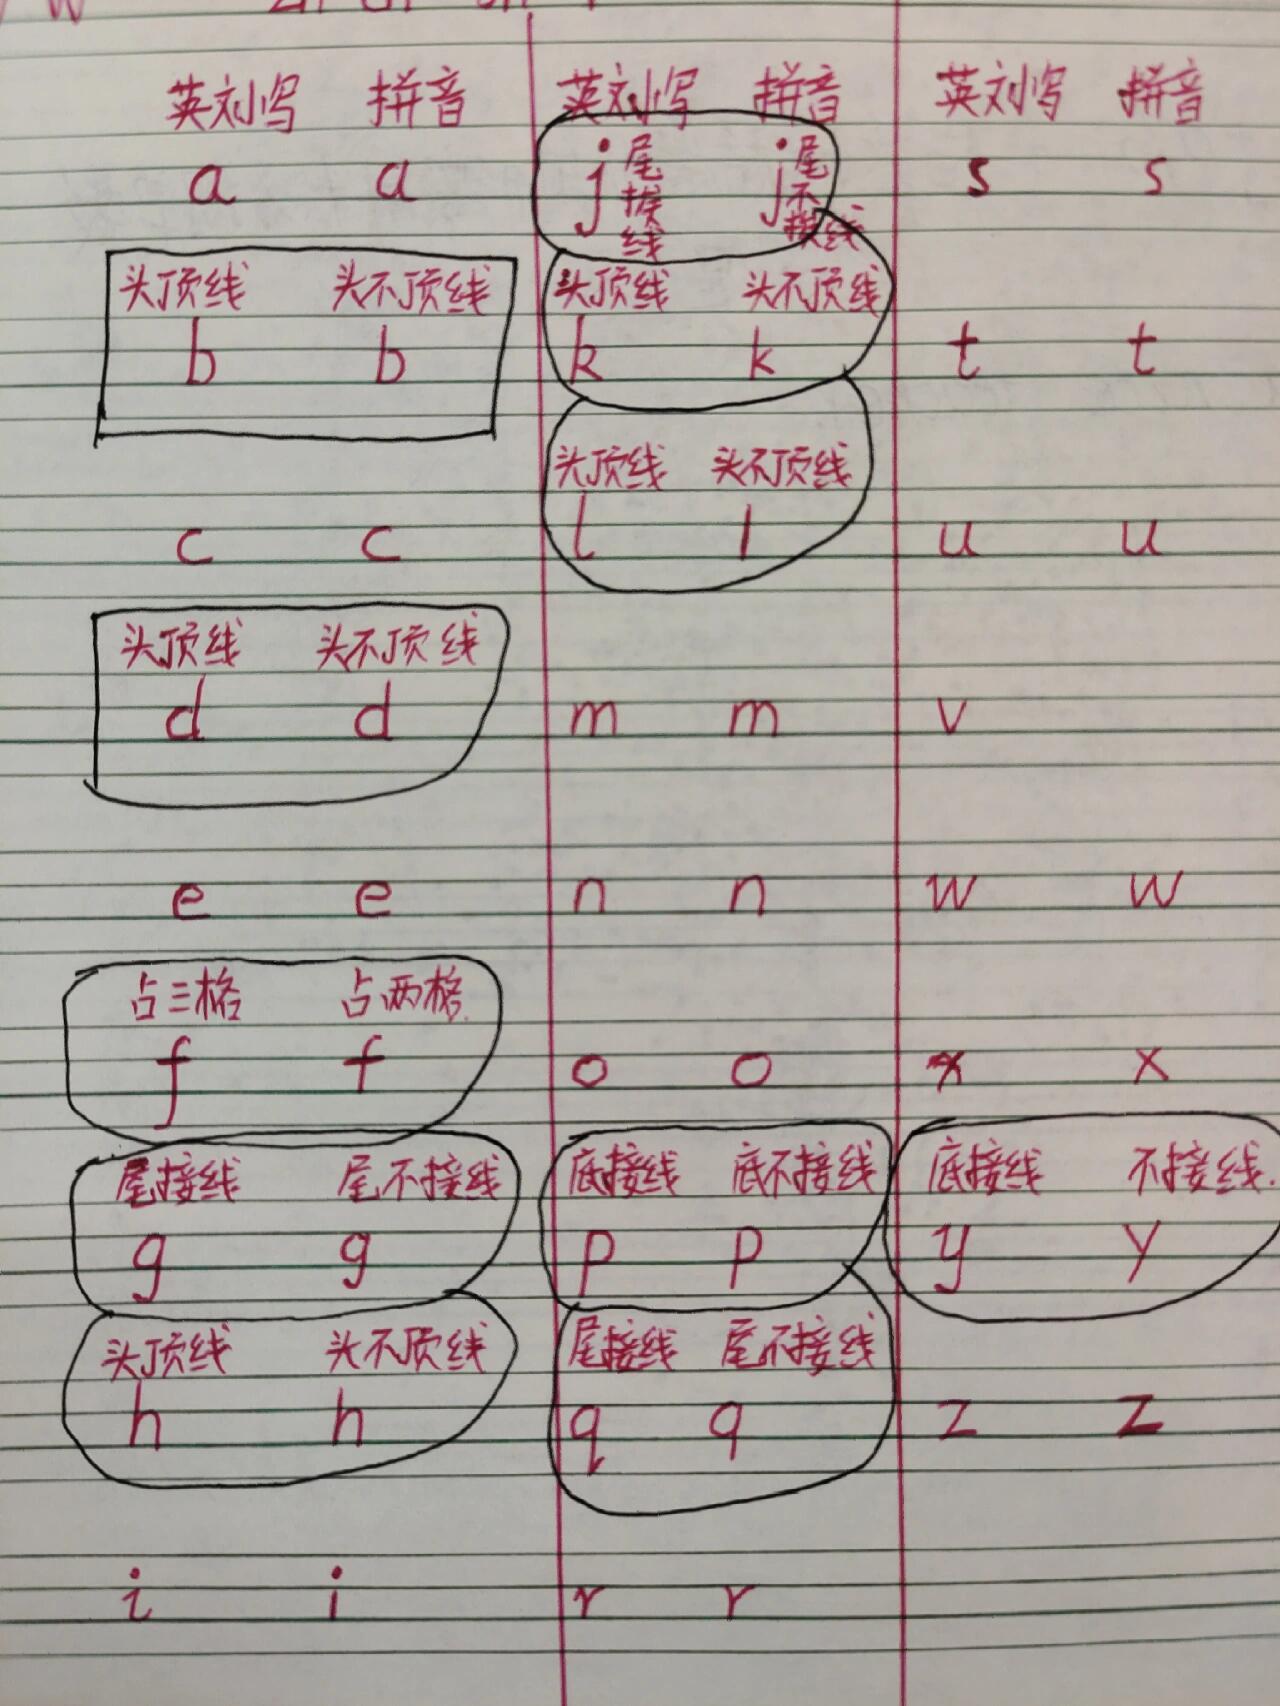 英刘写 拼音
a a
头顶线 头不顶线
b b
c c
头顶线 头不顶线
d d
e e
占三格 占两格
f f
尾接线 尾不接线
g g
头顶线 头不顶线
h h
i i
英刘写 拼音
j 尾接线 j 尾不接线
头顶线 头不顶线
k k
头顶线 头不顶线
l l
m m
n n
o o
底接线 底不接线
p p
尾接线 尾不接线
q q
r r
英刘写 拼音
s s
t t
u u
v
w w
x x
底接线 不接线
y y
z z